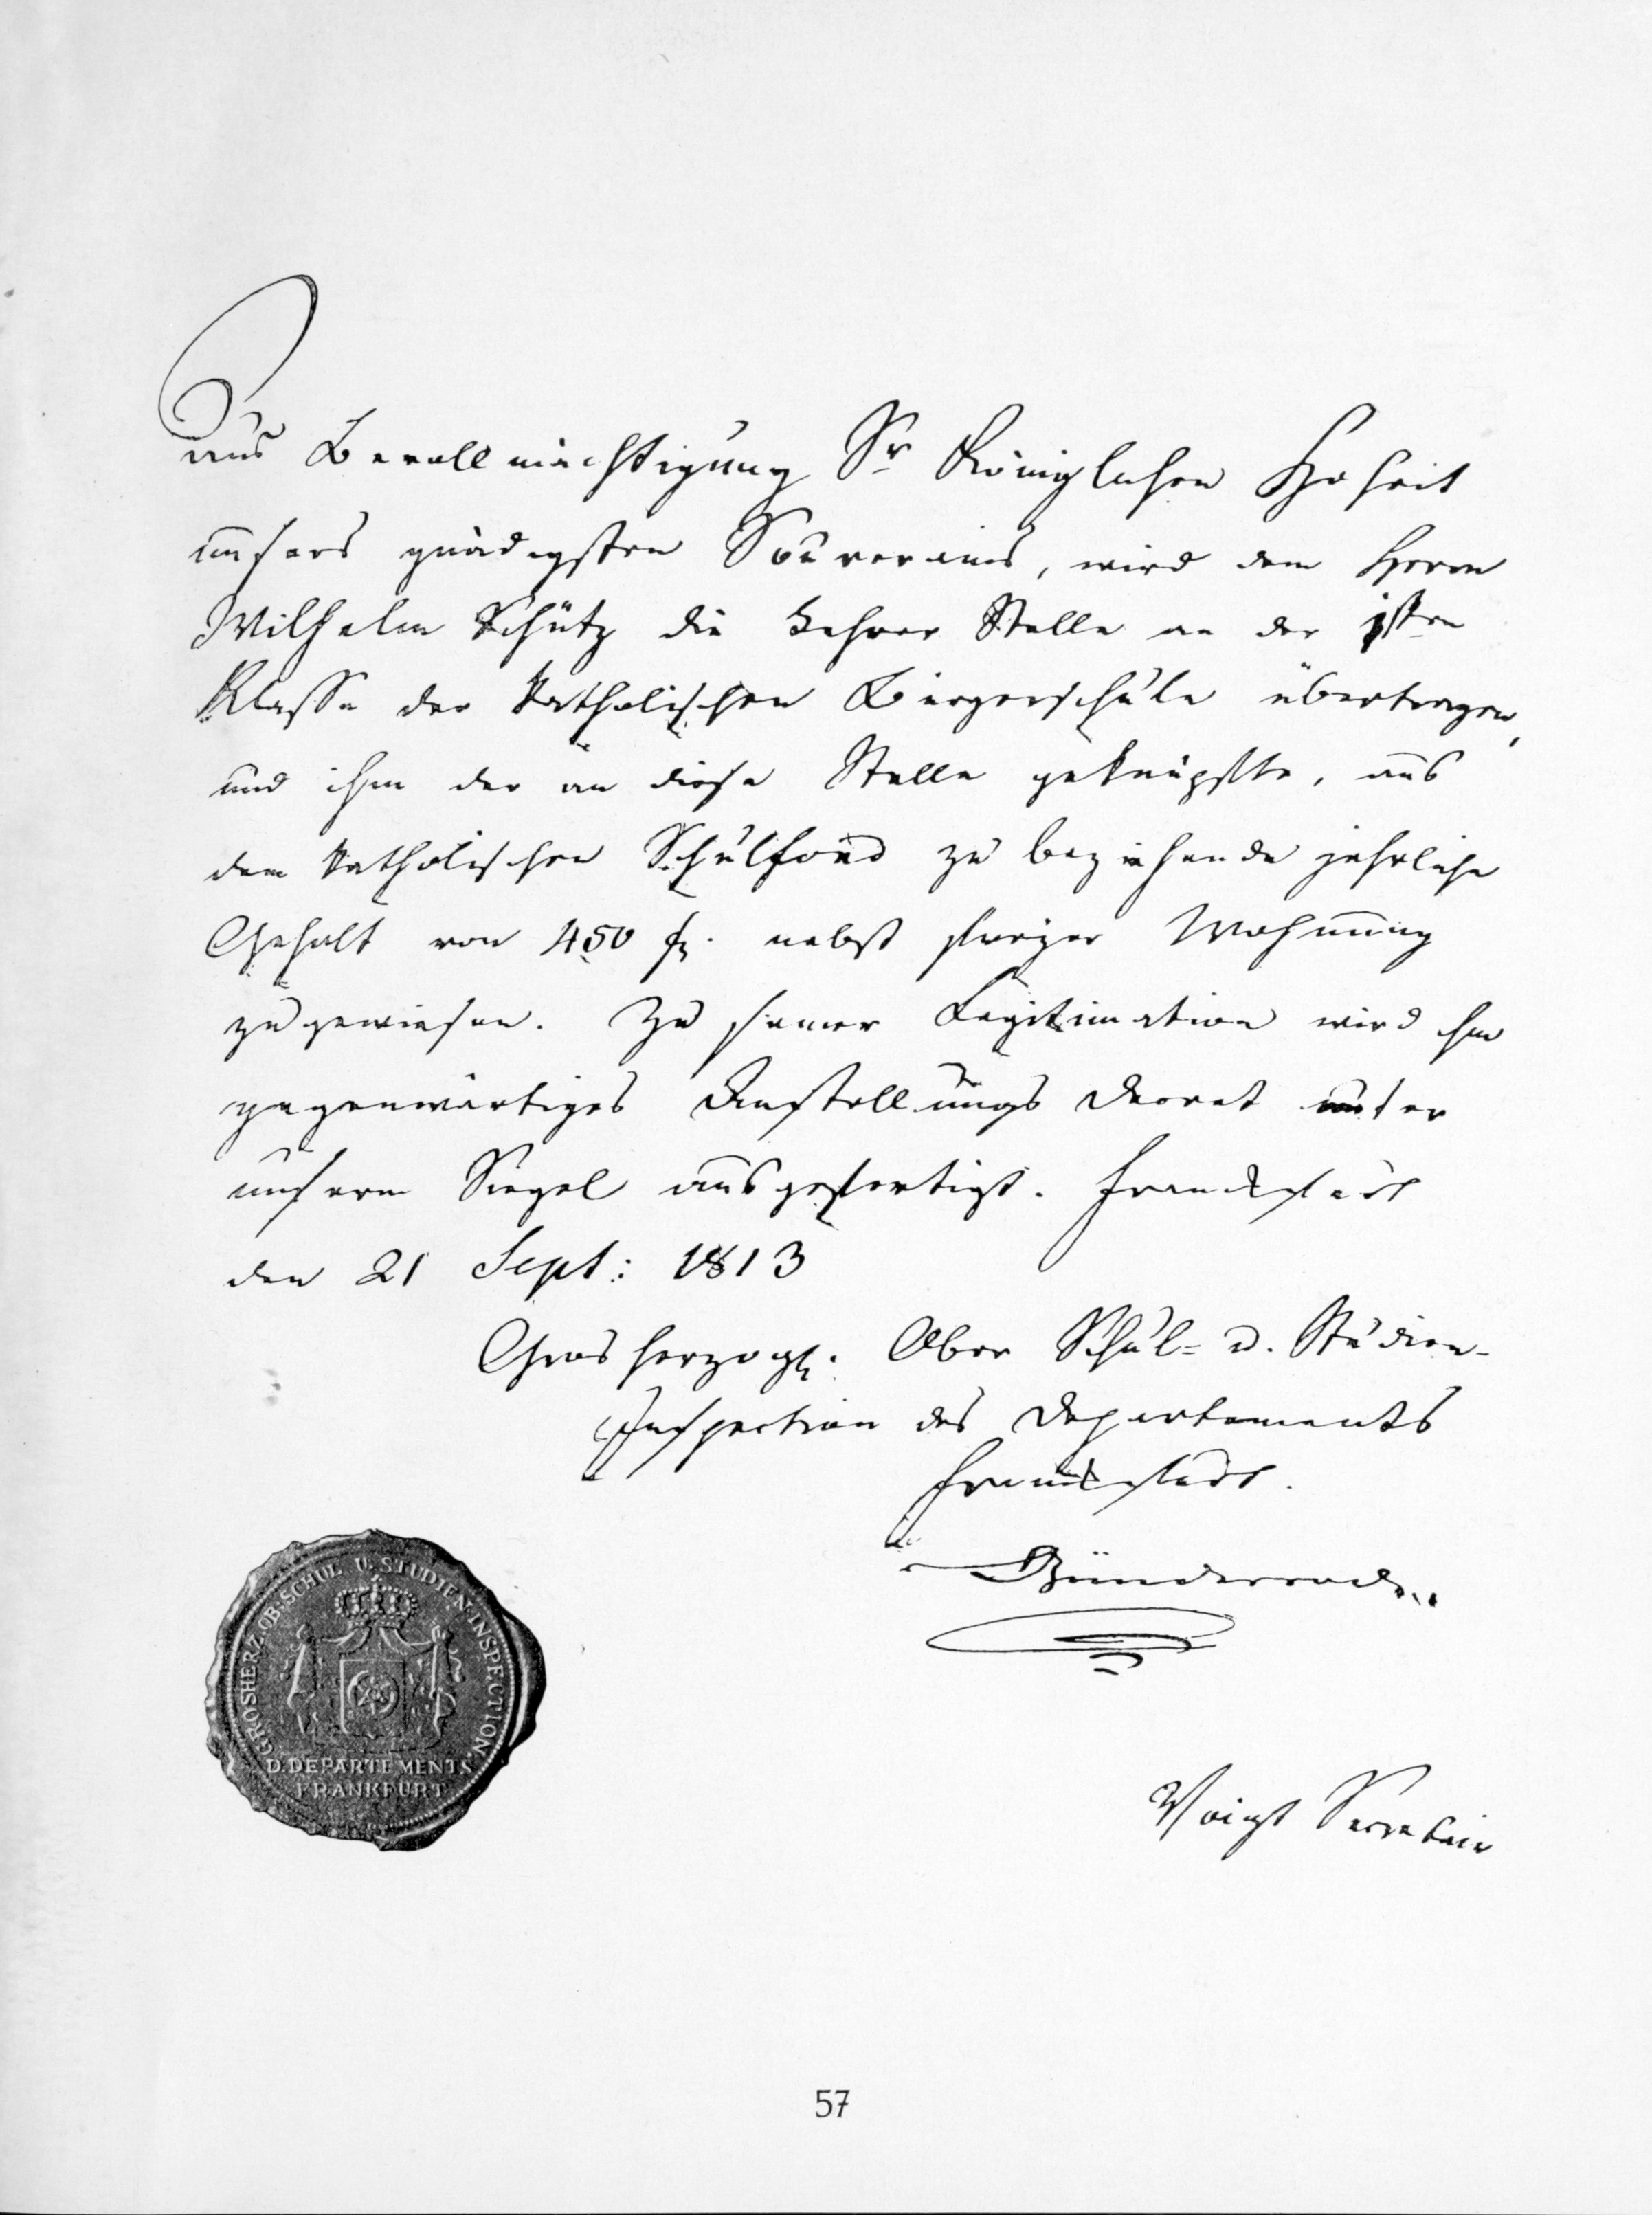 Aus Bevollmächtigung Sr Königlichen Hoheit
unsers gnädigsten Souverains, wird dem Herrn
Wilhelm Schütz die Lehrer Stelle an der 1sten
Klasse der katholischen Bürgerschule übertragen,
und ihm der an diese Stelle geknüpfte, aus
dem katholischen Schulfond zu beziehende jährliche
Gehalt von 450 f. nebst freyer Wohnung
zugewiesen. Zu seiner Legitimation wird ihm
gegenwärtiges Anstellungs Decret unter
unserm Siegel ausgefertigt. Franckfurt
den 21 Sept: 1813
Grosherzogl. Ober Schul- u. Studien-
Inspection des Departements
Franckfurt.
Günderrode
GROSHERZ. OB. SCHUL U. STUDIEN-INSPECTION.
D. DEPARTEMENTS
FRANKFURT
Voigt Secretair
57